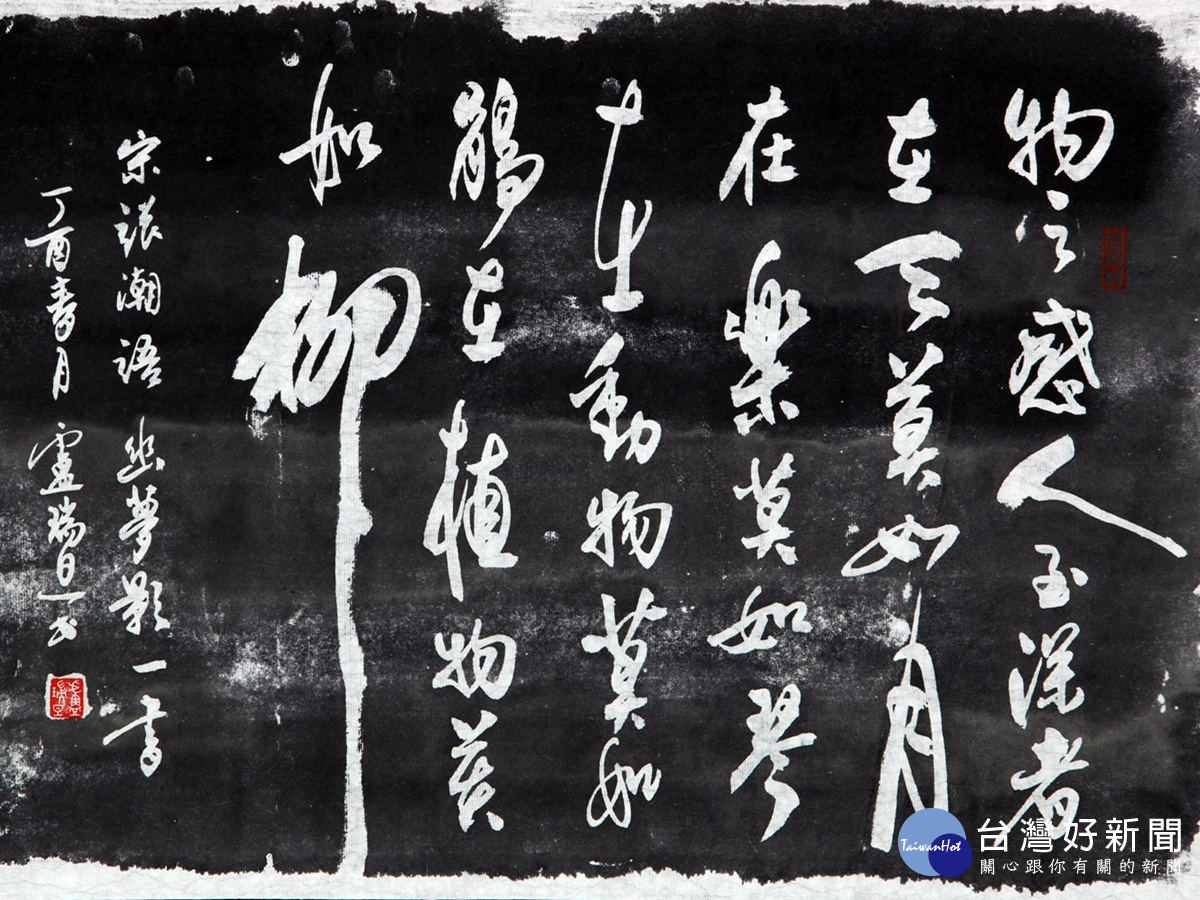 物之感人至深者
在天莫如月
在樂莫如琴
在動物莫如
鵑在植物莫
如柳
宋張潮語幽夢影一書
丁酉春月盧瑞
TaiwanHot
台灣好新聞
關心跟你有關的新聞